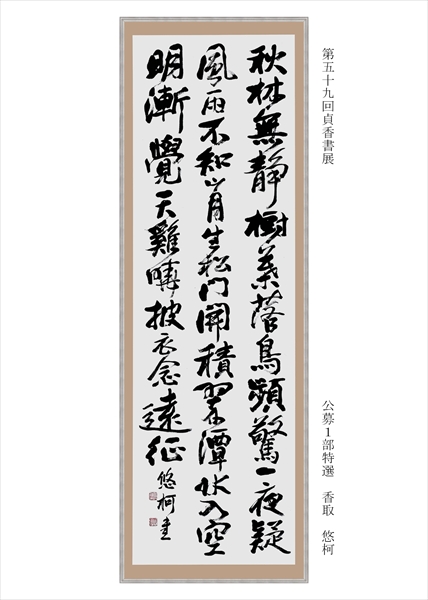 第五十九回貞香書展
公募1部特選　香取　悠柯
秋林無靜樹葉落鳥頻驚一夜疑
風雨不知山月生松門開積翠潭水入空
明漸覺天雞曉披衣念遠征 悠柯書